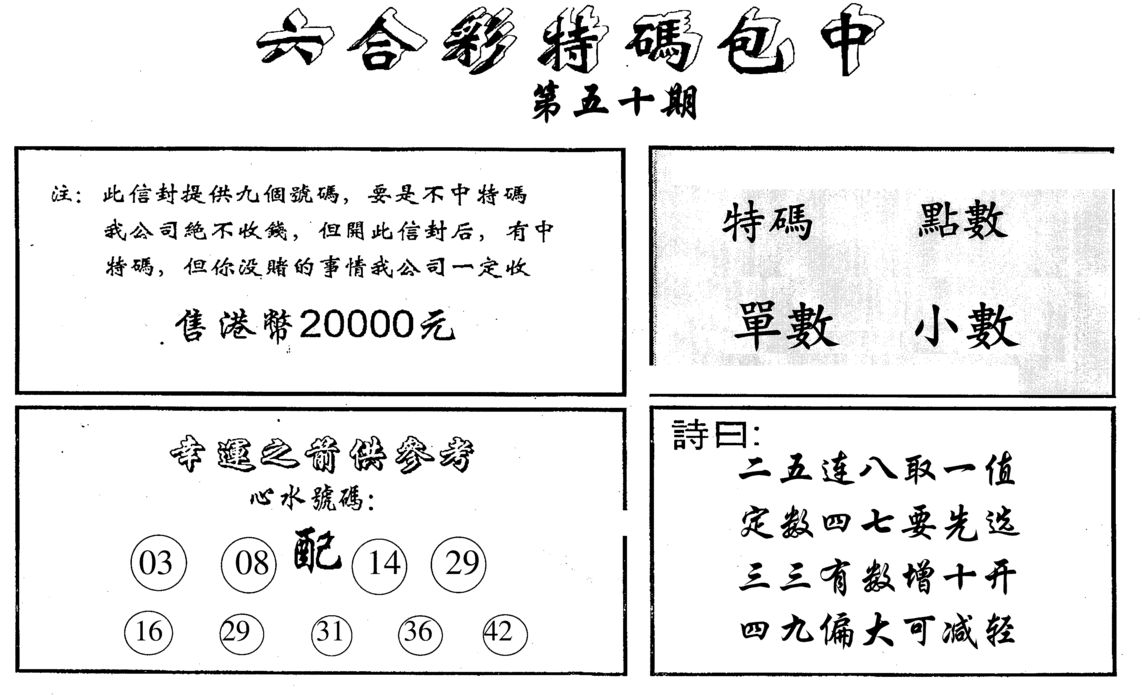 六合彩特碼包中
第五十期
注：此信封提供九個號碼，要是不中特碼
我公司絶不收錢，但開此信封后，有中
特碼，但你没賭的事情我公司一定收
售港幣20000元
特碼 點數
單數 小數
幸運之箭供參考
心水號碼：
03 08 配 14 29
16 29 31 36 42
詩曰：
二五连八取一值
定数四七要先选
三三有数增十开
四九偏大可减轻